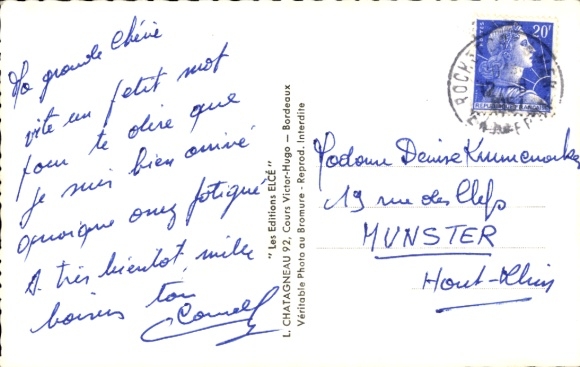 Ma grande Chérie
vite un petit mot
pour te dire que
je suis bien arrivé
quoique assez fatigué
A très bientôt, mille
baisers ton
"Les Editions ELCÉ"
L. CHATAGNEAU 92, Cours Victor-Hugo — Bordeaux
Véritable Photo au Bromure - Reprod. Interdite
20F
POSTES
REPUBLIQUE FRANÇAISE
Madame Denise
19 rue des Clefs
MUNSTER
Haut-Rhin